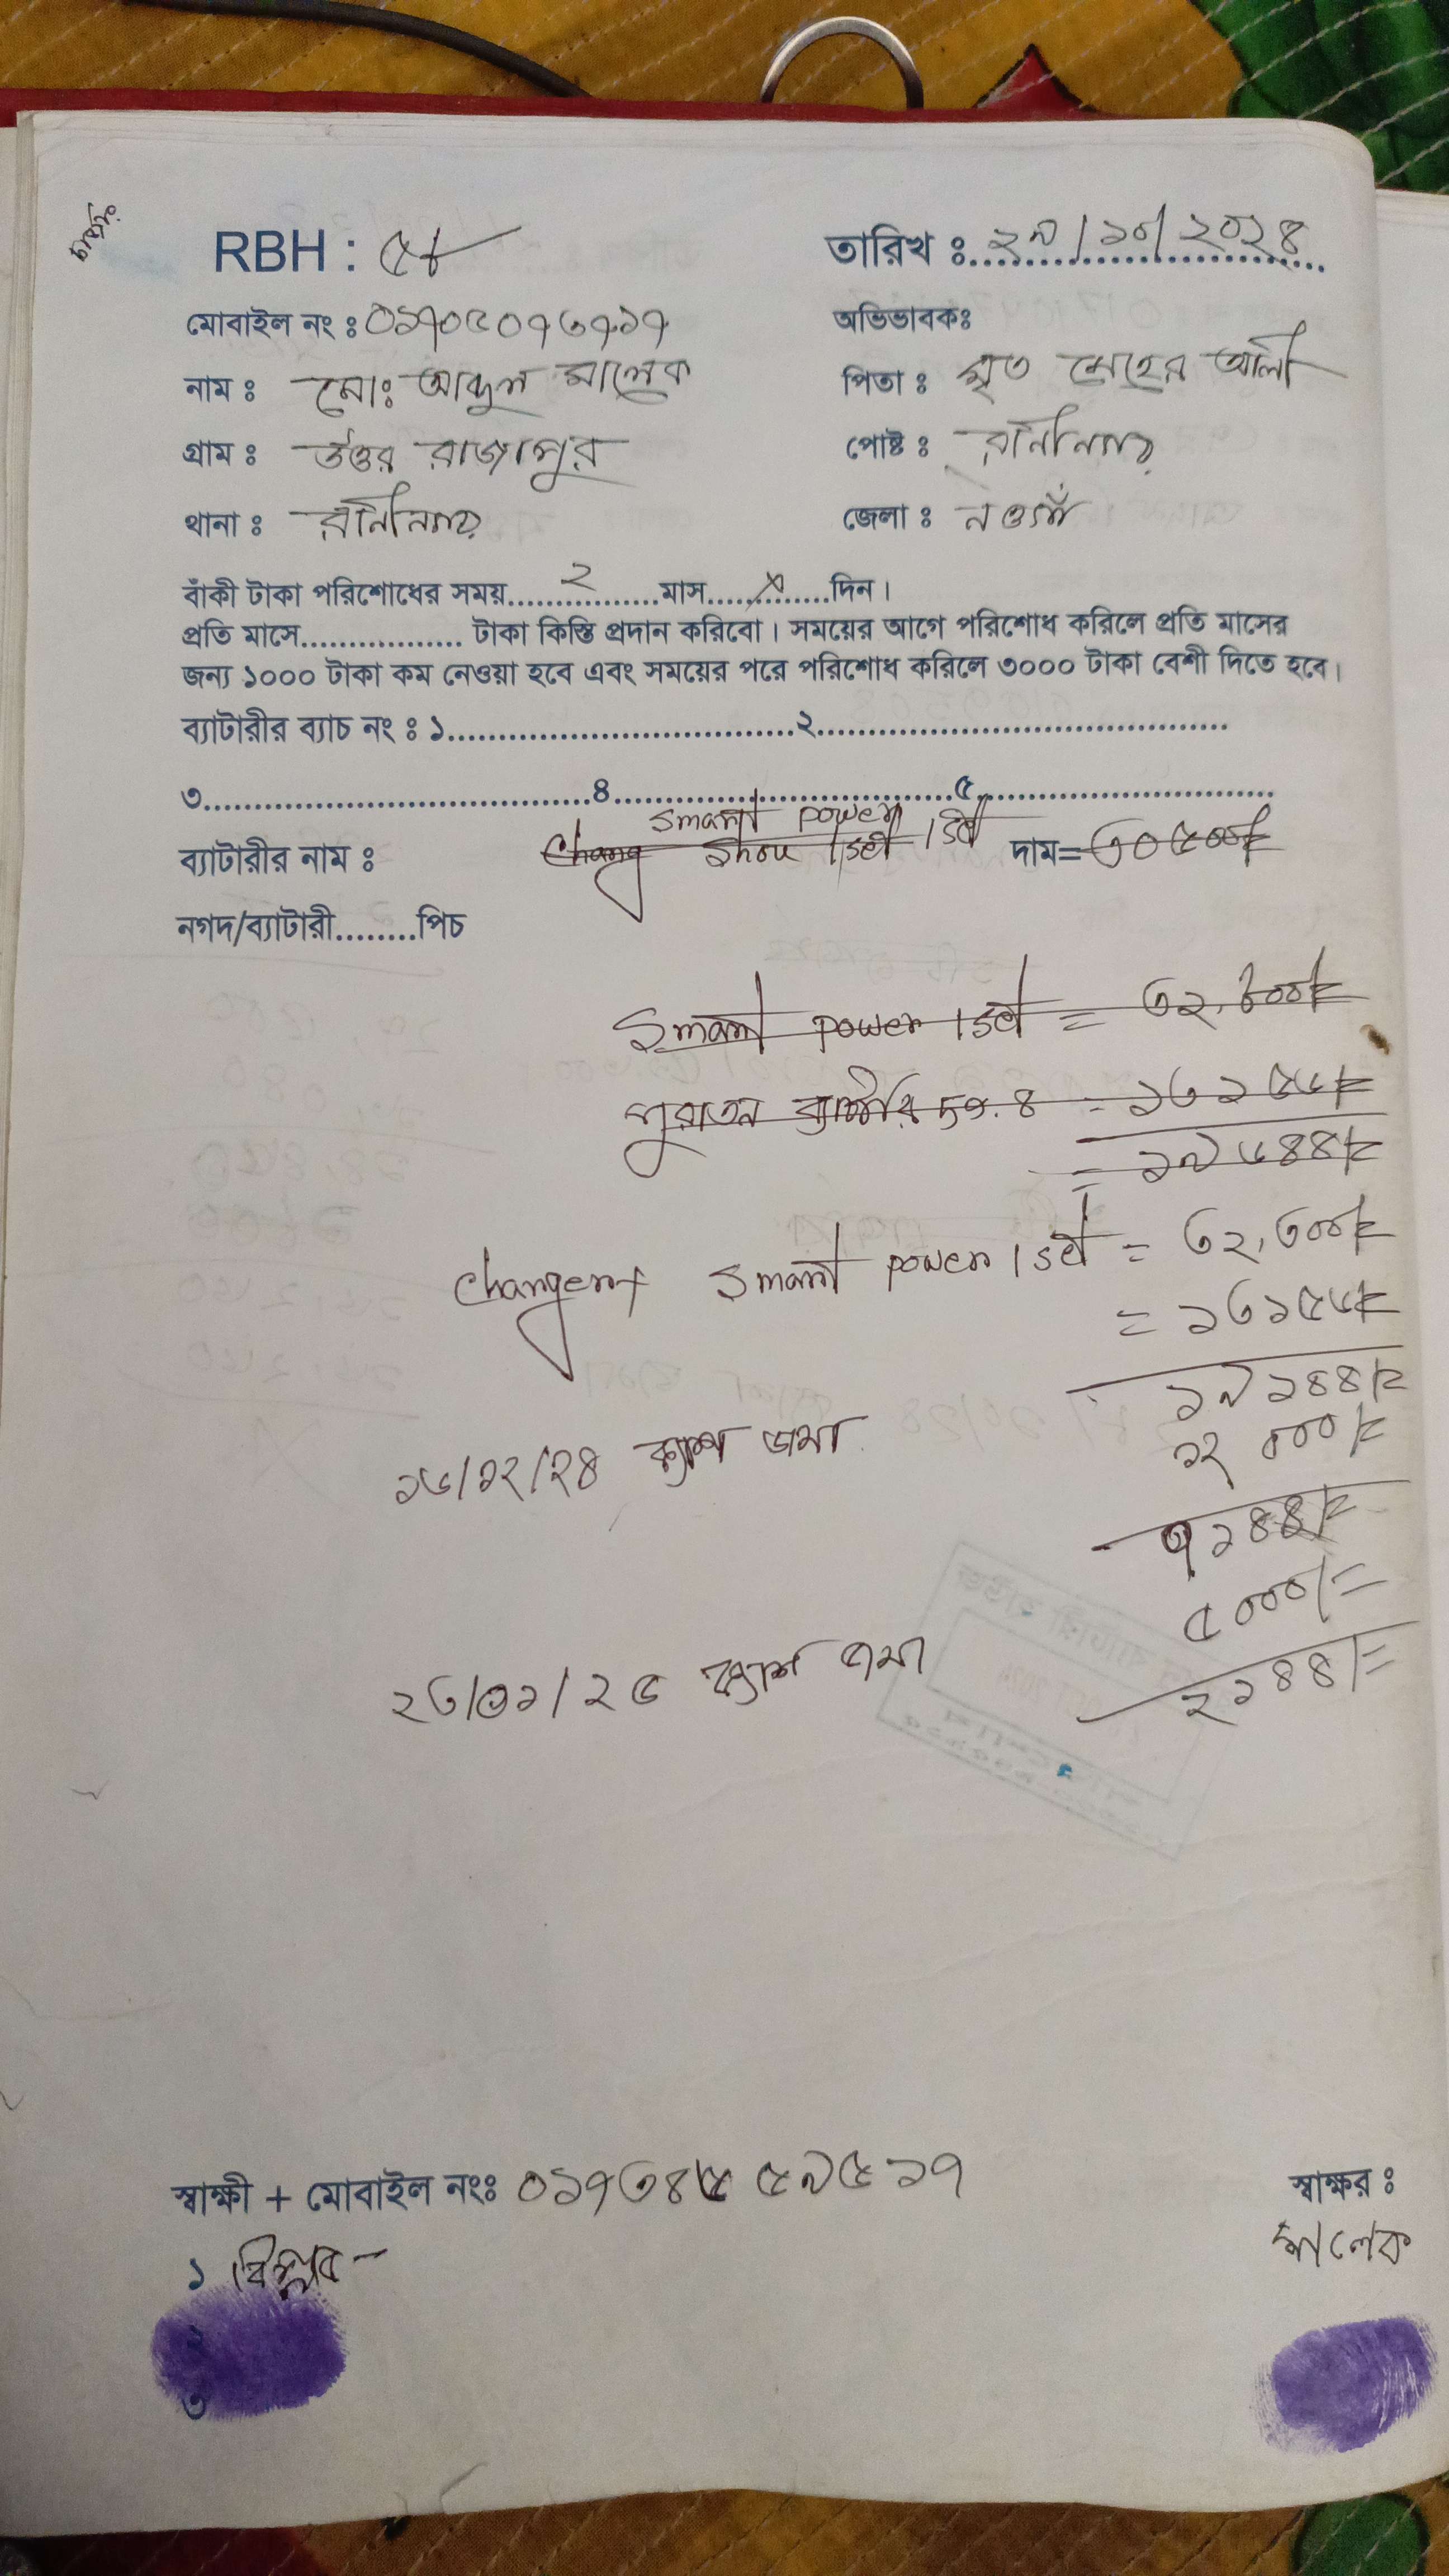 RBH : ৫৮
তারিখ ঃ ২৯/১০/২০২৪
মোবাইল নং ঃ ০১৭০৫০৭৩৭১৭
অভিভাবকঃ
নাম ঃ মোঃ আব্দুল মালেক
পিতা ঃ মৃত মেহের আলী
গ্রাম ঃ উত্তর রাজাপুর
পোষ্ট ঃ রানীনগর
থানা ঃ রানীনগর
জেলা ঃ নওগাঁ
বাঁকী টাকা পরিশোধের সময়......২......মাস......x......দিন।
প্রতি মাসে................ টাকা কিস্তি প্রদান করিবো। সময়ের আগে পরিশোধ করিলে প্রতি মাসের
জন্য ১০০০ টাকা কম নেওয়া হবে এবং সময়ের পরে পরিশোধ করিলে ৩০০০ টাকা বেশী দিতে হবে।
ব্যাটারীর ব্যাচ নং ঃ ১..................২..................
৩..................৪..................৫..................
Smart power 1 set
ব্যাটারীর নাম ঃ Chang Shou 1 set দাম=৩০৫০০/=
নগদ/ব্যাটারী........পিচ
Smart power 1 set = ৩২,৮০০/=
পুরাতন ব্যাটারি ৮৭.৪ = ১৩১৫৬/=
= ১৯৬৪৪/=
Smart power 1 set = ৩২,৩০০/=
= ১৩১৫৬/=
১৯১৪৪/=
১৬/১২/২৪ ক্যাশ জমা ১২০০০/=
৭১৪৪/=
৫০০০/=
২৩/০১/২৫ ক্যাশ জমা ২১৪৪/=
স্বাক্ষী + মোবাইল নংঃ ০১৭৩৪৫৫৯৫১৭
স্বাক্ষর ঃ
মালেক
১
৩